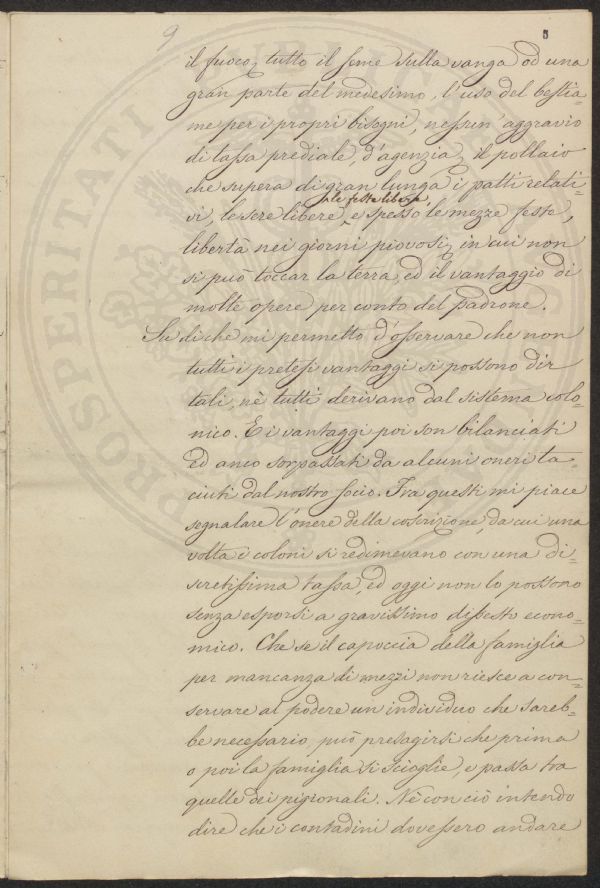 9
5
il fuoco, tutto il seme sulla vanga od una
gran parte del medesimo, l'uso del bestia=
me per i propri bisogni, nessun' aggravio
di tassa prediale, d'agenzia, il pollaio
che supera di gran lunga i patti relati=
vi, le sere libere, le feste libere, e spesso le mezze feste,
libertà nei giorni piovosi, in cui non
si può toccar la terra, ed il vantaggio di
molte opere per conto del padrone.
Su di che mi permetto d'osservare che non
tutti i pretesi vantaggi si possono dir
tali, nè tutti derivano dal sistema colo=
nico. E i vantaggi poi son bilanciati
ed anco sorpassati da alcuni oneri ta=
ciuti dal nostro socio. Fra questi mi piace
segnalare l'onere della coscrizione, da cui una
volta i coloni si redimevano con una di=
scretissima tassa, ed oggi non lo possono
senza esporsi a gravissimo dissesto econo=
mico. Che se il capoccia della famiglia
per mancanza di mezzi non riesce a con=
servare al podere un individuo che sareb=
be necessario, può presagirsi che prima
o poi la famiglia si scioglie, e passa tra
quelle dei pigionali. Nè con ciò intendo
dire che i contadini dovessero andare
PROSPERITATI PUBLICAE